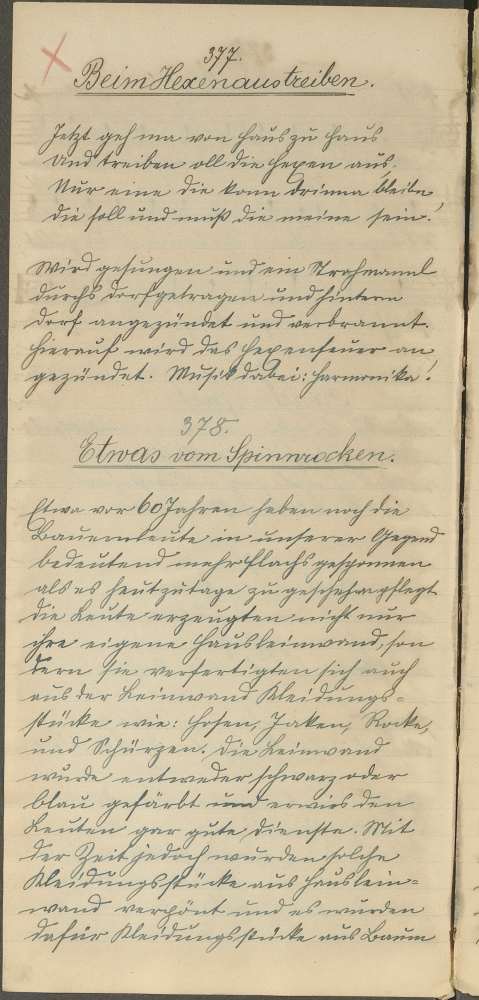 377.
Beim Hexenaustreiben.
Jetzt geh ma von Haus zu Haus
und treiben oll die Hexen aus.
Nur eine die konn drinna bleibn,
die soll und muß die meine sein!
Wird gesungen und ein Strohmannl
durchs Dorf getragen und hinterm
Dorf angezündet und verbrannt.
Hierauf wird das Hexenfeuer an
gezündet. Musik dabei: Harmonika!
378.
Etwas vom Spinnrocken.
Etwa vor 60 Jahren haben noch die
Bauernleute in unserer Gegend
bedeutend mehr Flachs gesponnen
als es heutzutage zu geschehen pflegt.
Die Leute erzeugten nicht nur
ihre eigene Hausleinwand, son
dern sie verfertigten sich auch
aus der Leinwand Kleidungs-
stücke wie: Hosen, Jaken, Rocke,
und Schürzen. Die Leinwand
wurde entweder schwarz oder
blau gefärbt und erwies den
Leuten gar gute Dienste. Mit
der Zeit jedoch wurden solche
Kleidungsstücke aus Hauslein-
wand verpönt und es wurden
dafür Kleidungsstücke aus Baum